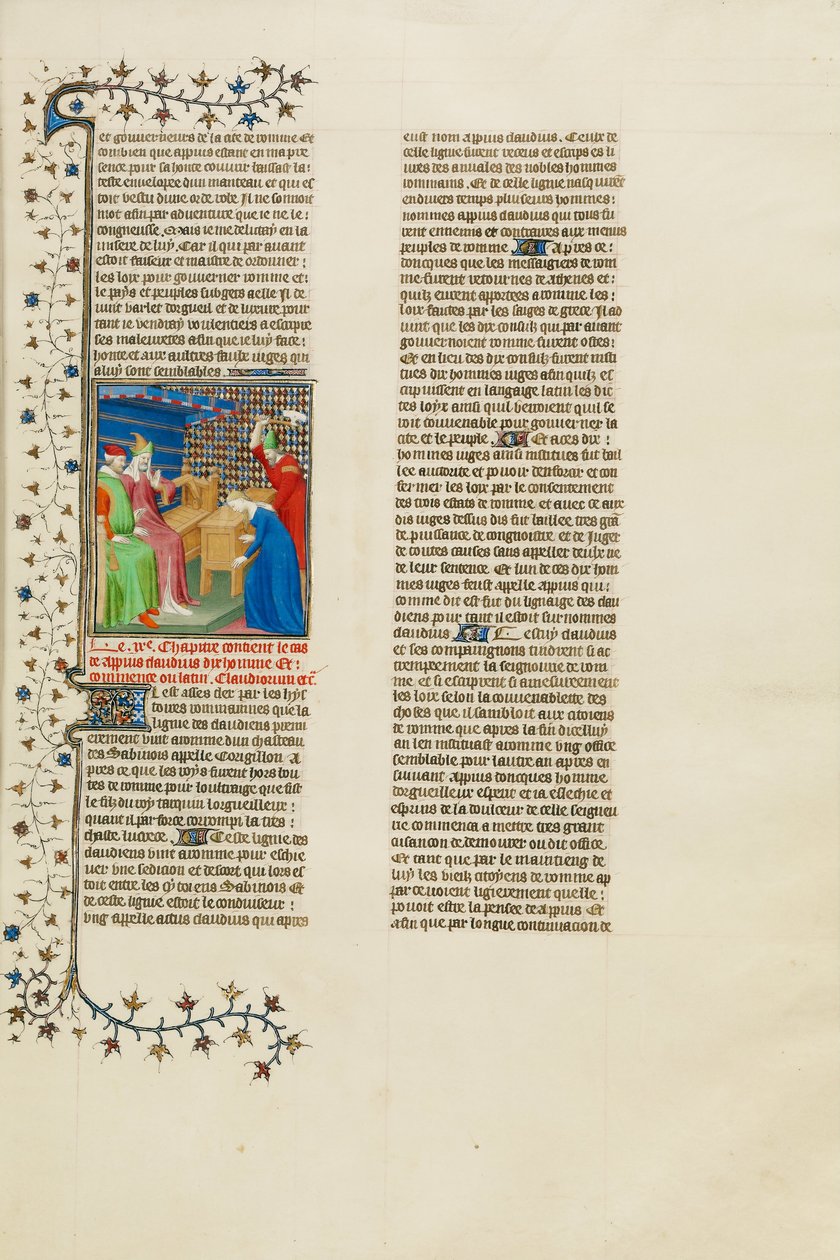 et gouverneurs de la cite de romme Et
combien que appius estant en ma pre
sence pour sa honte couvrir laissast la:
teste envelopee dun manteau et qui es
toit vestu dune orde robe Il ne sonnoit
mot afin par adventure que ie ne le:
congneusse. Mais ie me delitay en la
misere de luy. Car il qui par auant
estoit faiseur et maistre de ordonner:
les loix pour gouverner romme et:
le pays et peuples subgets a elle Il de
vint varlet dorgueil et de luxure pour
tant ie vendray voulentiers a escripre
ses maleurtes afin que ie luy face:
honte et aux aultres faulx iuges qui
a luy sont semblables.
Le. iiie. Chapitre contient le cas
de Appius claudius dix homme Et:
commence ou latin. Claudiorum etc.
Il est asses cler par les hys
toires rommainnes que la
ligne des claudiens premi
erement vint a romme dun chasteau
des Sabinois appelle Corigillon A
pres ce que les roys furent hors bou
tes de romme pour loultraige que fist
le filz du roy tarquin lorgueilleux:
quant il par force corrompi la tres:
chaste lucrece. Ceste lignie des
claudiens vint a romme pour eschie
uer vne sedicion et descort qui lors es
toit entre les cytoiens Sabinois Et
de ceste lignie estoit le conduiseur:
vng appelle actus claudius qui apres
eust nom appius claudius. Ceulx de
celle ligne furent receus et escrips es li
ures des annales des nobles hommes
rommains. Et de celle ligne nasquirent
en divers temps pluseurs hommes:
nommes appius claudius qui tous fu
rent ennemis et contraires aux menus
peuples de romme Apres ce:
doncques que les messaigiers de rom
me furent retournes de athenes et:
quilz eurent apportees a romme les:
loix faites par les saiges de grece Il ad
vint que les dix consulz qui par auant
gouvernoient romme furent ostes:
Et en lieu des dix consulz furent insti
tues dix hommes iuges afin quilz es
cripuissent en langaige latin les dic
tes loyx ainsi quil verroient quil se
roit couvenable pour gouverner la
cite et le peuple. Et a ces dix:
hommes iuges ainsi institues fut bail
lee auctorite et povoir denforcer et con
fermer les loix par le consentement
des trois estats de romme et avec ce aux
dis iuges dessus dis fut baillee tres grant
de puissance de congnoistre et de Juger
de toutes causes sans appeller deulx ne
de leur sentence. Et lun de ces dix hom
mes iuges feust appelle appius qui:
comme dit est fut du lignaige des clau
diens pour tant il estoit surnommes
claudius Cestuy claudius
et ses compaignons tindrent si at
trempeement la seigneurie de rom
me et si escriprent si amesureement
les loix selon la couvenablete des
choses que il sambloit aux citoiens
de romme que apres la fin dicelluy
an len instituast a romme vng office
semblable pour lautre an apres en
suivant Appius doncques homme
dorgueilleux esperit et ia esleschie et
espruis de la doulceur de celle seigneu
rie commenca a mettre tres grant
cusancon de demourer ou dit office
Et tant que par le maintieng de
luy les vieilz citoyens de romme ap
parcevoient ligierement quelle:
povoit estre la pensee de Appius Et
afin que par longue continuacion de